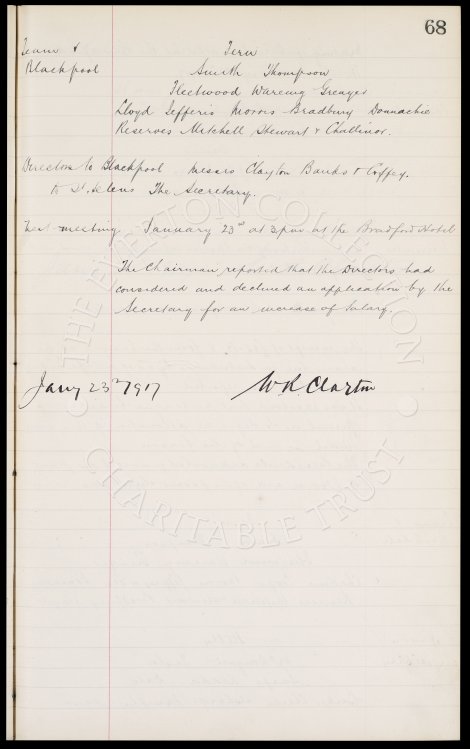 68
Team v Fern
Blackpool Smith Thompson
Fleetwood Wareing Grenyer
Lloyd Jefferis Morris Bradbury Donnachie
Reserves Mitchell, Stewart & Challinor.
Directors to Blackpool Messrs Clayton Banks & Coffey.
to St. Helens The Secretary.
Next meeting January 23rd at 3pm at the Bradford Hotel
The Chairman reported that the Directors had
considered and declined an application by the
Secretary for an increase of salary.
Jany 23rd 1917 W.R. Clayton
THE EVERTON COLLECTION
CHARITABLE TRUST